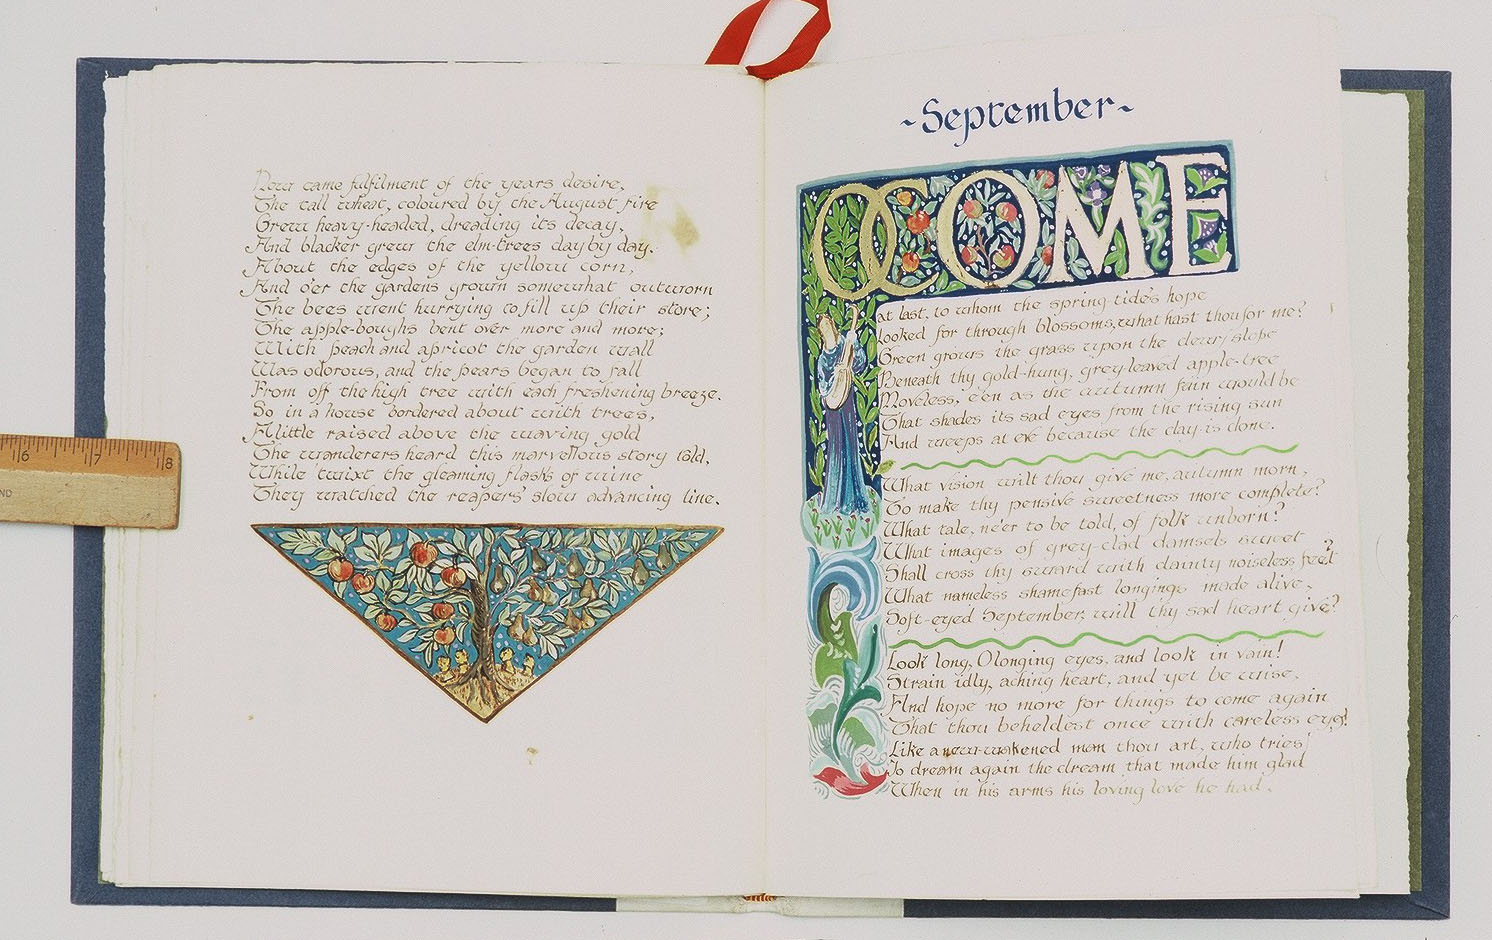 Now came fulfilment of the years desire,
The tall wheat, coloured by the August fire
Grew heavy-headed, dreading its decay,
And blacker grew the elm-trees day by day.
About the edges of the yellow corn,
And o'er the gardens grown somewhat outworn
The bees went hurrying to fill up their store;
The apple-boughs bent over more and more;
With peach and apricot the garden wall
Was odorous, and the pears began to fall
From off the high tree with each freshening breeze.
So in a house bordered about with trees,
A little raised above the waving gold
The wanderers heard this marvellous story told,
While 'twixt the gleaming flasks of wine
They watched the reapers' slow advancing line.
~September~
O COME
at last, to whom the spring-tide's hope
Looked for through blossoms, what hast thou for me?
Green grows the grass upon the dewy slope
Beneath thy gold-hung, grey-leaved apple-tree
Moveless, e'en as the autumn fain would be
That shades its sad eyes from the rising sun
And weeps at eve because the day is done.
What vision wilt thou give me, autumn morn,
To make thy pensive sweetness more complete?
What tale, ne'er to be told, of folk unborn?
What images of grey-clad damsels sweet
Shall cross thy sward with dainty noiseless feet?
What nameless shamefast longings made alive,
Soft-eyed September, will thy sad heart give?
Look long, O longing eyes, and look in vain!
Strain idly, aching heart, and yet be wise,
And hope no more for things to come again
That thou beheldest once with careless eyes!
Like a new-wakened man thou art, who tries
To dream again the dream that made him glad
When in his arms his loving love he had.
6 7 8
ND